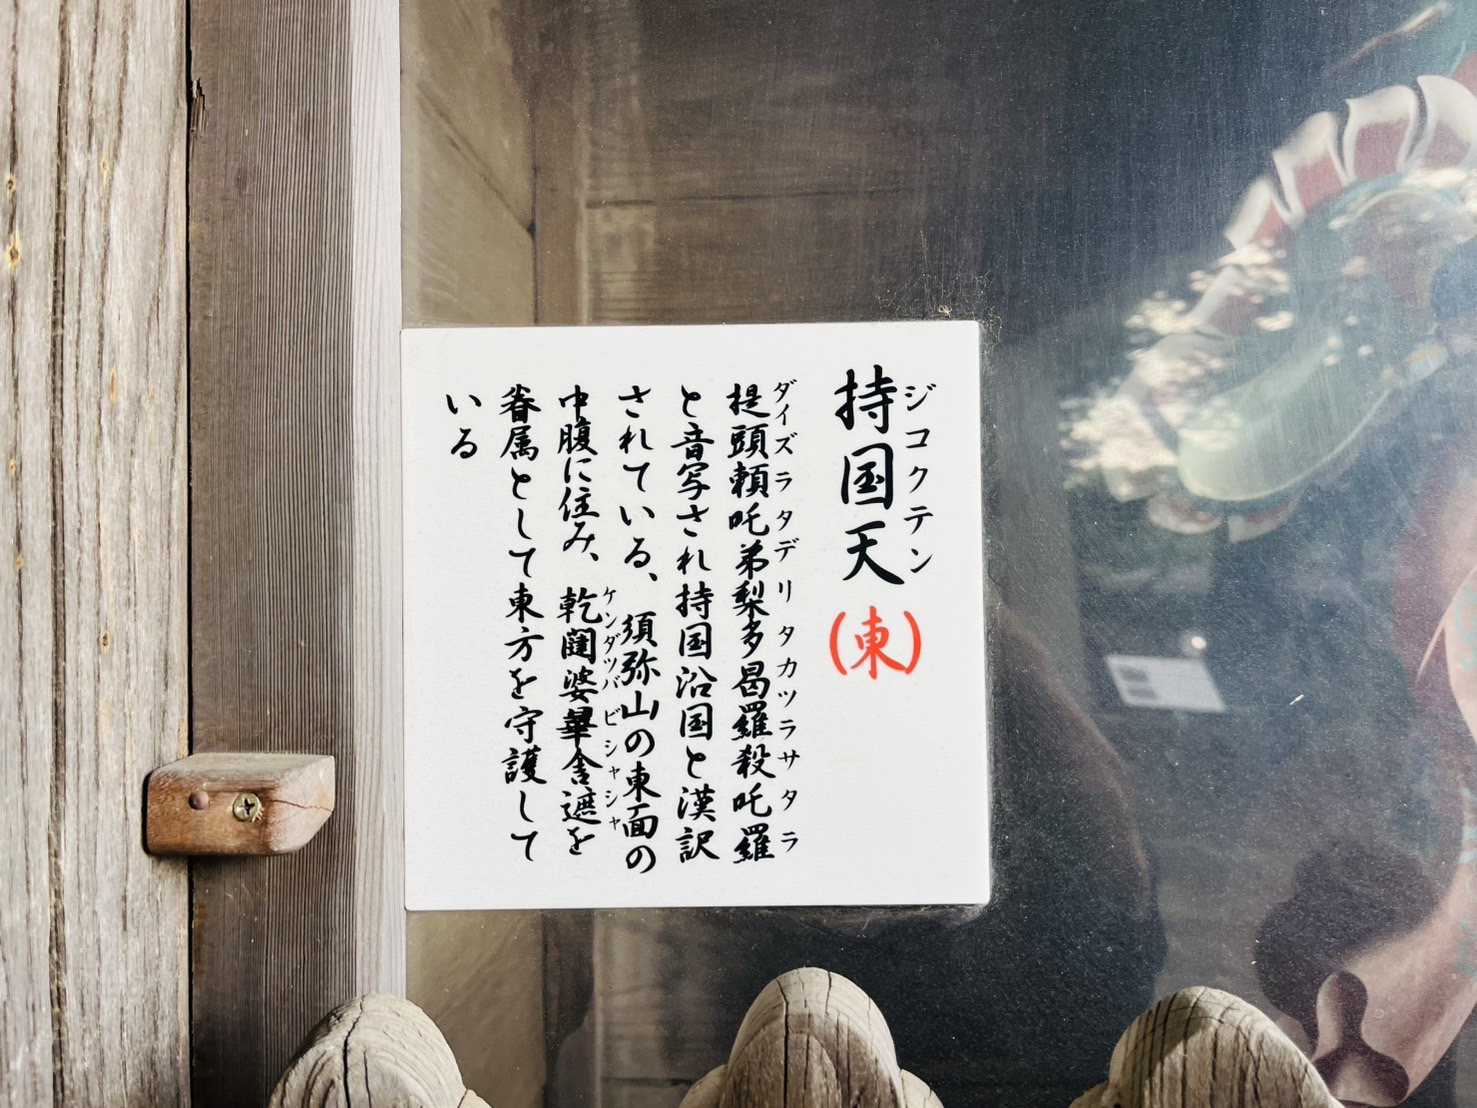 持国天(東)
ジコクテン
提頭頼吒弟梨多曷羅殺吒羅
ダイズラタデリタカツラサタラ
と音写され持国治国と漢訳
されている、須弥山の東面の
中腹に住み、乾闥婆畢舎遮を
ケンダツバビシャシャ
眷属として東方を守護して
いる